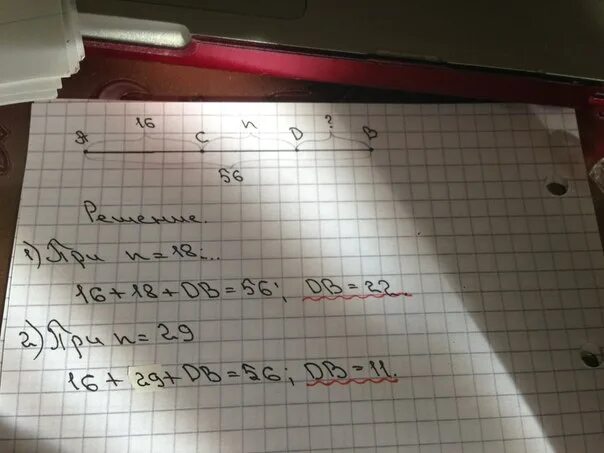 16 n ?
A C D B
56
Решение.
1) При n=18:..
16+18+DB=56; DB=22.
2) При n=29
16+29+DB=56; DB=11.